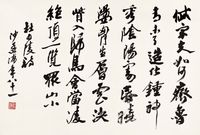 岱宗夫如何齊魯
青未了造化鍾神
秀陰陽割昏曉盪
胸生層雲決
眥入歸鳥會當凌
絕頂一覽眾山小
杜少陵詩
沙孟海年八十一